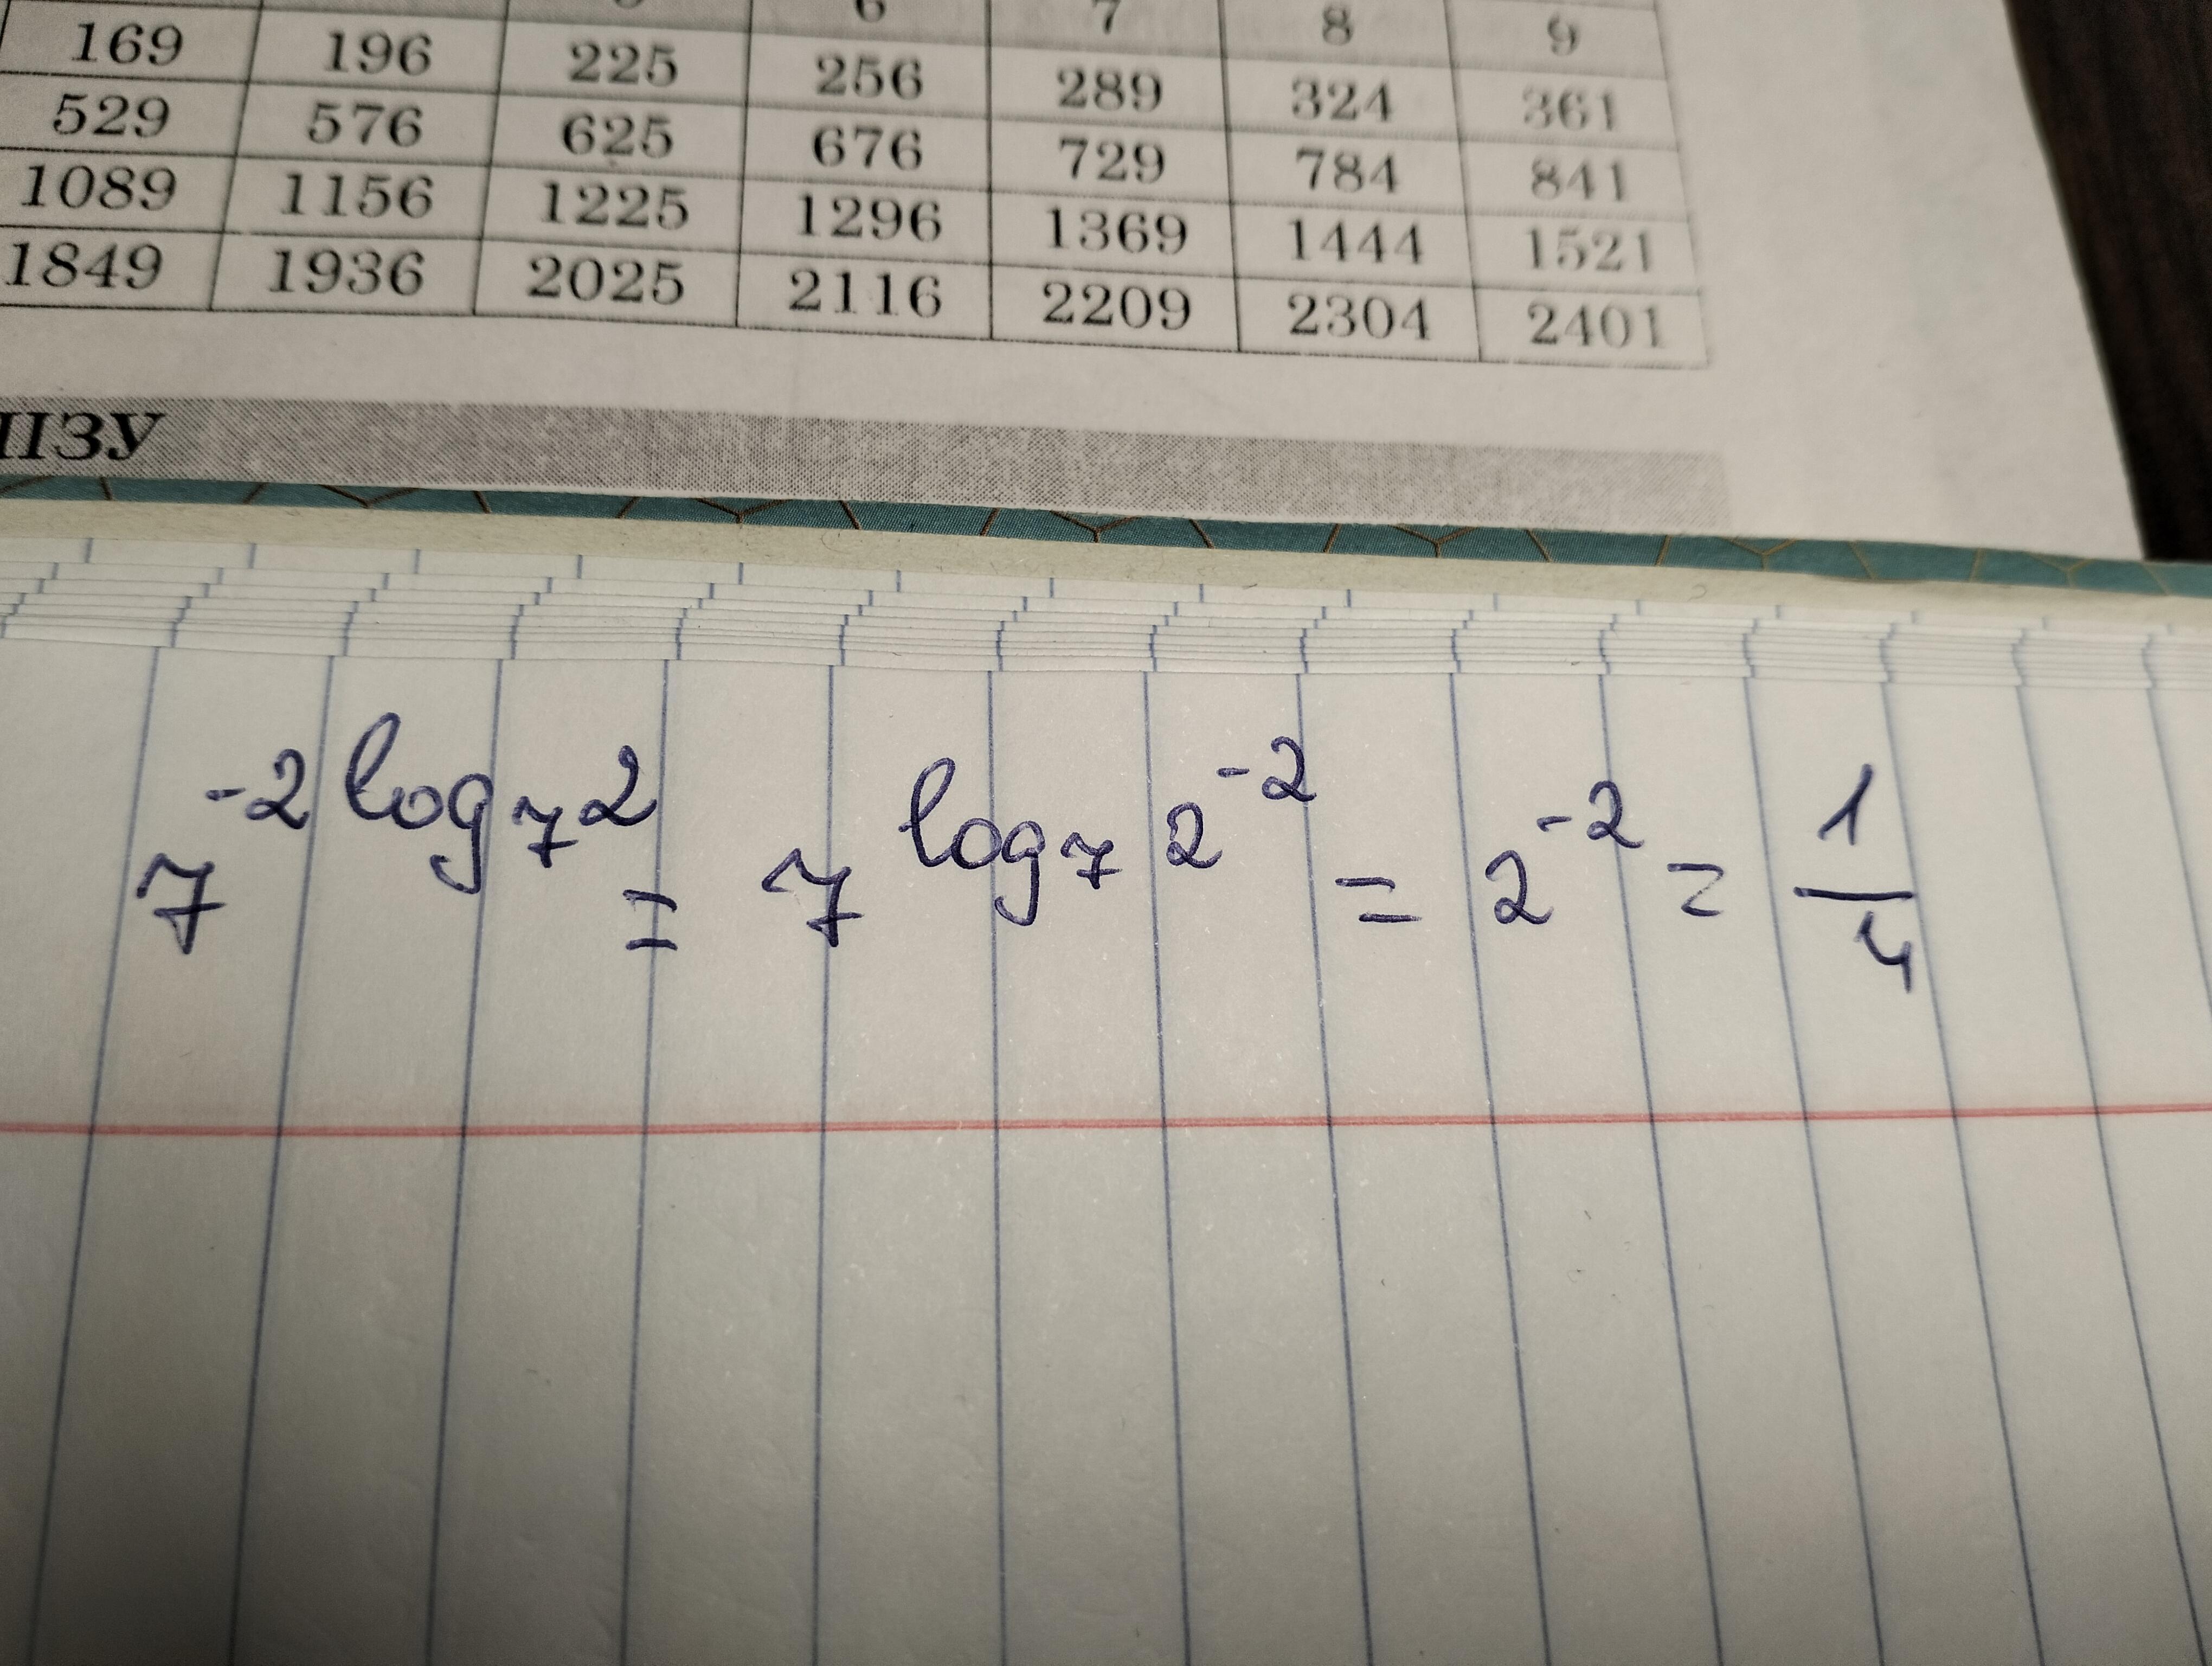 6 7 8 9
169 196 225 256 289 324 361
529 576 625 676 729 784 841
1089 1156 1225 1296 1369 1444 1521
1849 1936 2025 2116 2209 2304 2401
ІЗУ
7^{-2 log_7 2} = 7^{log_7 2^{-2}} = 2^{-2} = \frac{1}{4}